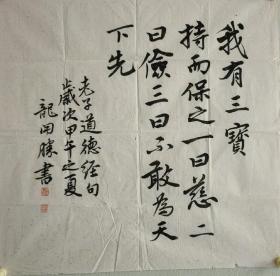 我有三寶
持而保之一曰慈二
曰儉三曰不敢為天
下先
老子道德经句
歲次甲午之夏
龍開勝書